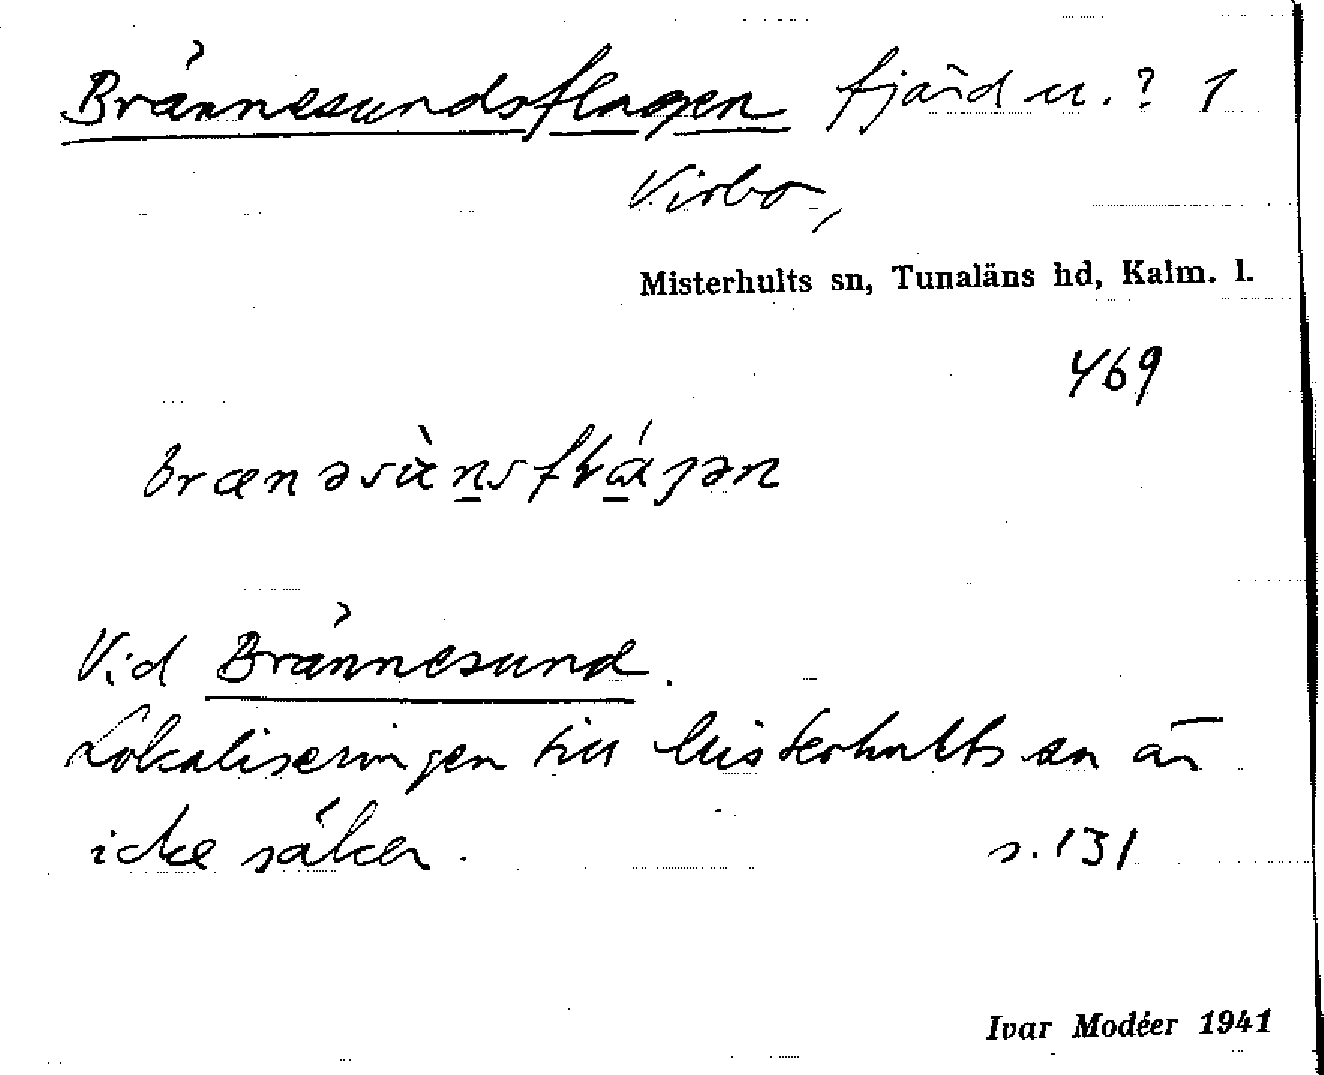 Brännesundsflagen fjärd u.? 1
Virbo,
Misterhults sn, Tunaläns hd, Kalm. l.
469
Vid Brännesund.
Lokaliseringen till Misterhults sn är
icke säker. s. 131
Ivar Modéer 1941